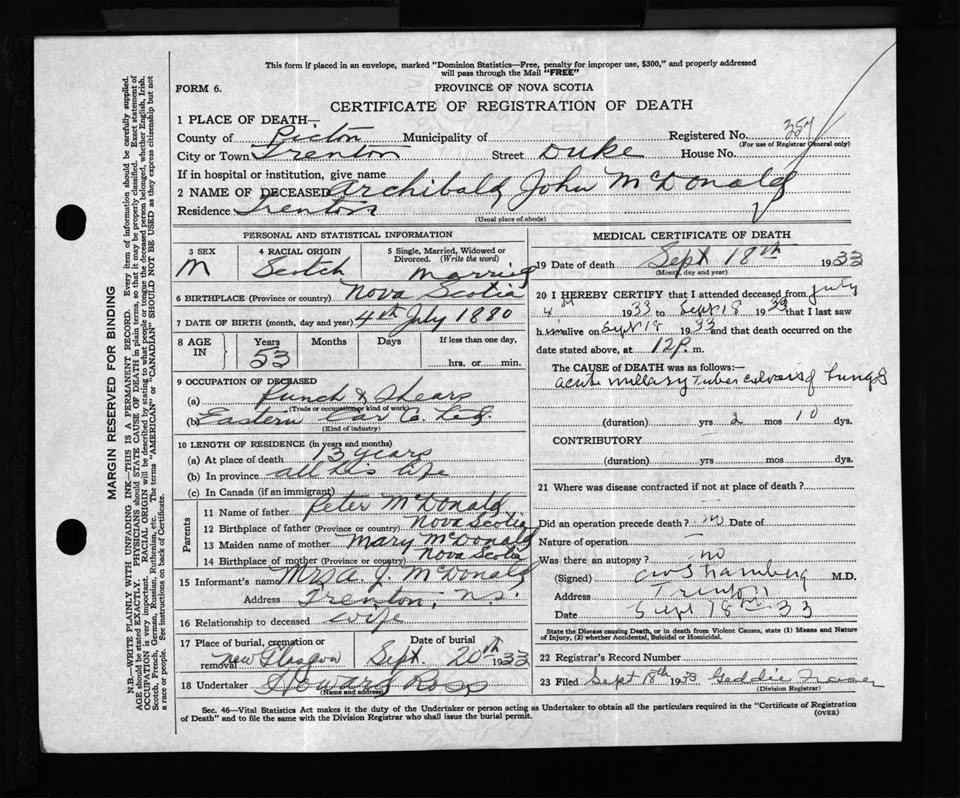 This form if placed in an envelope, marked "Dominion Statistics—Free, penalty for improper use, $300," and properly addressed
will pass through the Mail "FREE"
FORM 6.
PROVINCE OF NOVA SCOTIA
CERTIFICATE OF REGISTRATION OF DEATH
1 PLACE OF DEATH—
County of Pictou Municipality of Registered No. 357
(For use of Registrar General only)
City or Town Trenton Street Duke House No.
If in hospital or institution, give name
2 NAME OF DECEASED Archibald John McDonald
Residence Trenton
(Usual place of abode)
PERSONAL AND STATISTICAL INFORMATION
3 SEX M
4 RACIAL ORIGIN Scotch
5 Single, Married, Widowed or Divorced. (Write the word) Married
6 BIRTHPLACE (Province or country) Nova Scotia
7 DATE OF BIRTH (month, day and year) 4th July 1880
8 AGE IN Years 53 Months Days If less than one day, hrs. or min.
9 OCCUPATION OF DECEASED
(a) Punch & Shears
(Trade or occupation or kind of work)
(b) Eastern Car Co. Ltd.
(Kind of industry)
10 LENGTH OF RESIDENCE (in years and months)
(a) At place of death 13 years
(b) In province all his life
(c) In Canada (if an immigrant)
Parents
11 Name of father Peter McDonald
12 Birthplace of father (Province or country) Nova Scotia
13 Maiden name of mother Mary McDonald
14 Birthplace of mother (Province or country) Nova Scotia
15 Informant's name Mrs A. J. McDonald
Address Trenton, N.S.
16 Relationship to deceased wife
17 Place of burial, cremation or removal New Glasgow Date of burial Sept. 20th 1933
18 Undertaker Howard Ross
(Name and address)
MEDICAL CERTIFICATE OF DEATH
19 Date of death Sept 18th 1933
(Month, day and year)
20 I HEREBY CERTIFY that I attended deceased from July
4th 1933 to Sept 18 1933 that I last saw
him alive on Sept 18 1933 and that death occurred on the
date stated above, at 12 P. m.
The CAUSE OF DEATH was as follows:—
acute miliary Tuberculosis of Lungs
(duration) yrs 2 mos 10 dys.
CONTRIBUTORY
(duration) yrs. mos. dys.
21 Where was disease contracted if not at place of death?
Did an operation precede death? no Date of
Nature of operation —
Was there an autopsy? no
(Signed) M.D.
Address Trenton
Date Sept 18th 33
State the Disease causing Death, or in death from Violent Causes, state (1) Means and Nature
of Injury, (2) whether Accidental, Suicidal or Homicidal.
22 Registrar's Record Number
23 Filed Sept 18th 1933 Geddie
(Division Registrar)
Sec. 46—Vital Statistics Act makes it the duty of the Undertaker or person acting as Undertaker to obtain all the particulars required in the "Certificate of Registration
of Death" and to file the same with the Division Registrar who shall issue the burial permit.
(OVER)
MARGIN RESERVED FOR BINDING
N.B.—WRITE PLAINLY WITH UNFADING INK—THIS IS A PERMANENT RECORD. Every item of information should be carefully supplied.
AGE should be stated EXACTLY. PHYSICIANS should STATE CAUSE OF DEATH in plain terms, so that it may be properly classified. Exact statement of
OCCUPATION is very important. RACIAL ORIGIN will be described by stating to what people or tongue the deceased person belonged, whether English, Irish,
Scotch, French, German, Russian, Ruthenian, etc. The terms "AMERICAN" or "CANADIAN" SHOULD NOT BE USED as they express citizenship but not
a race or people. See instructions on back of Certificate.